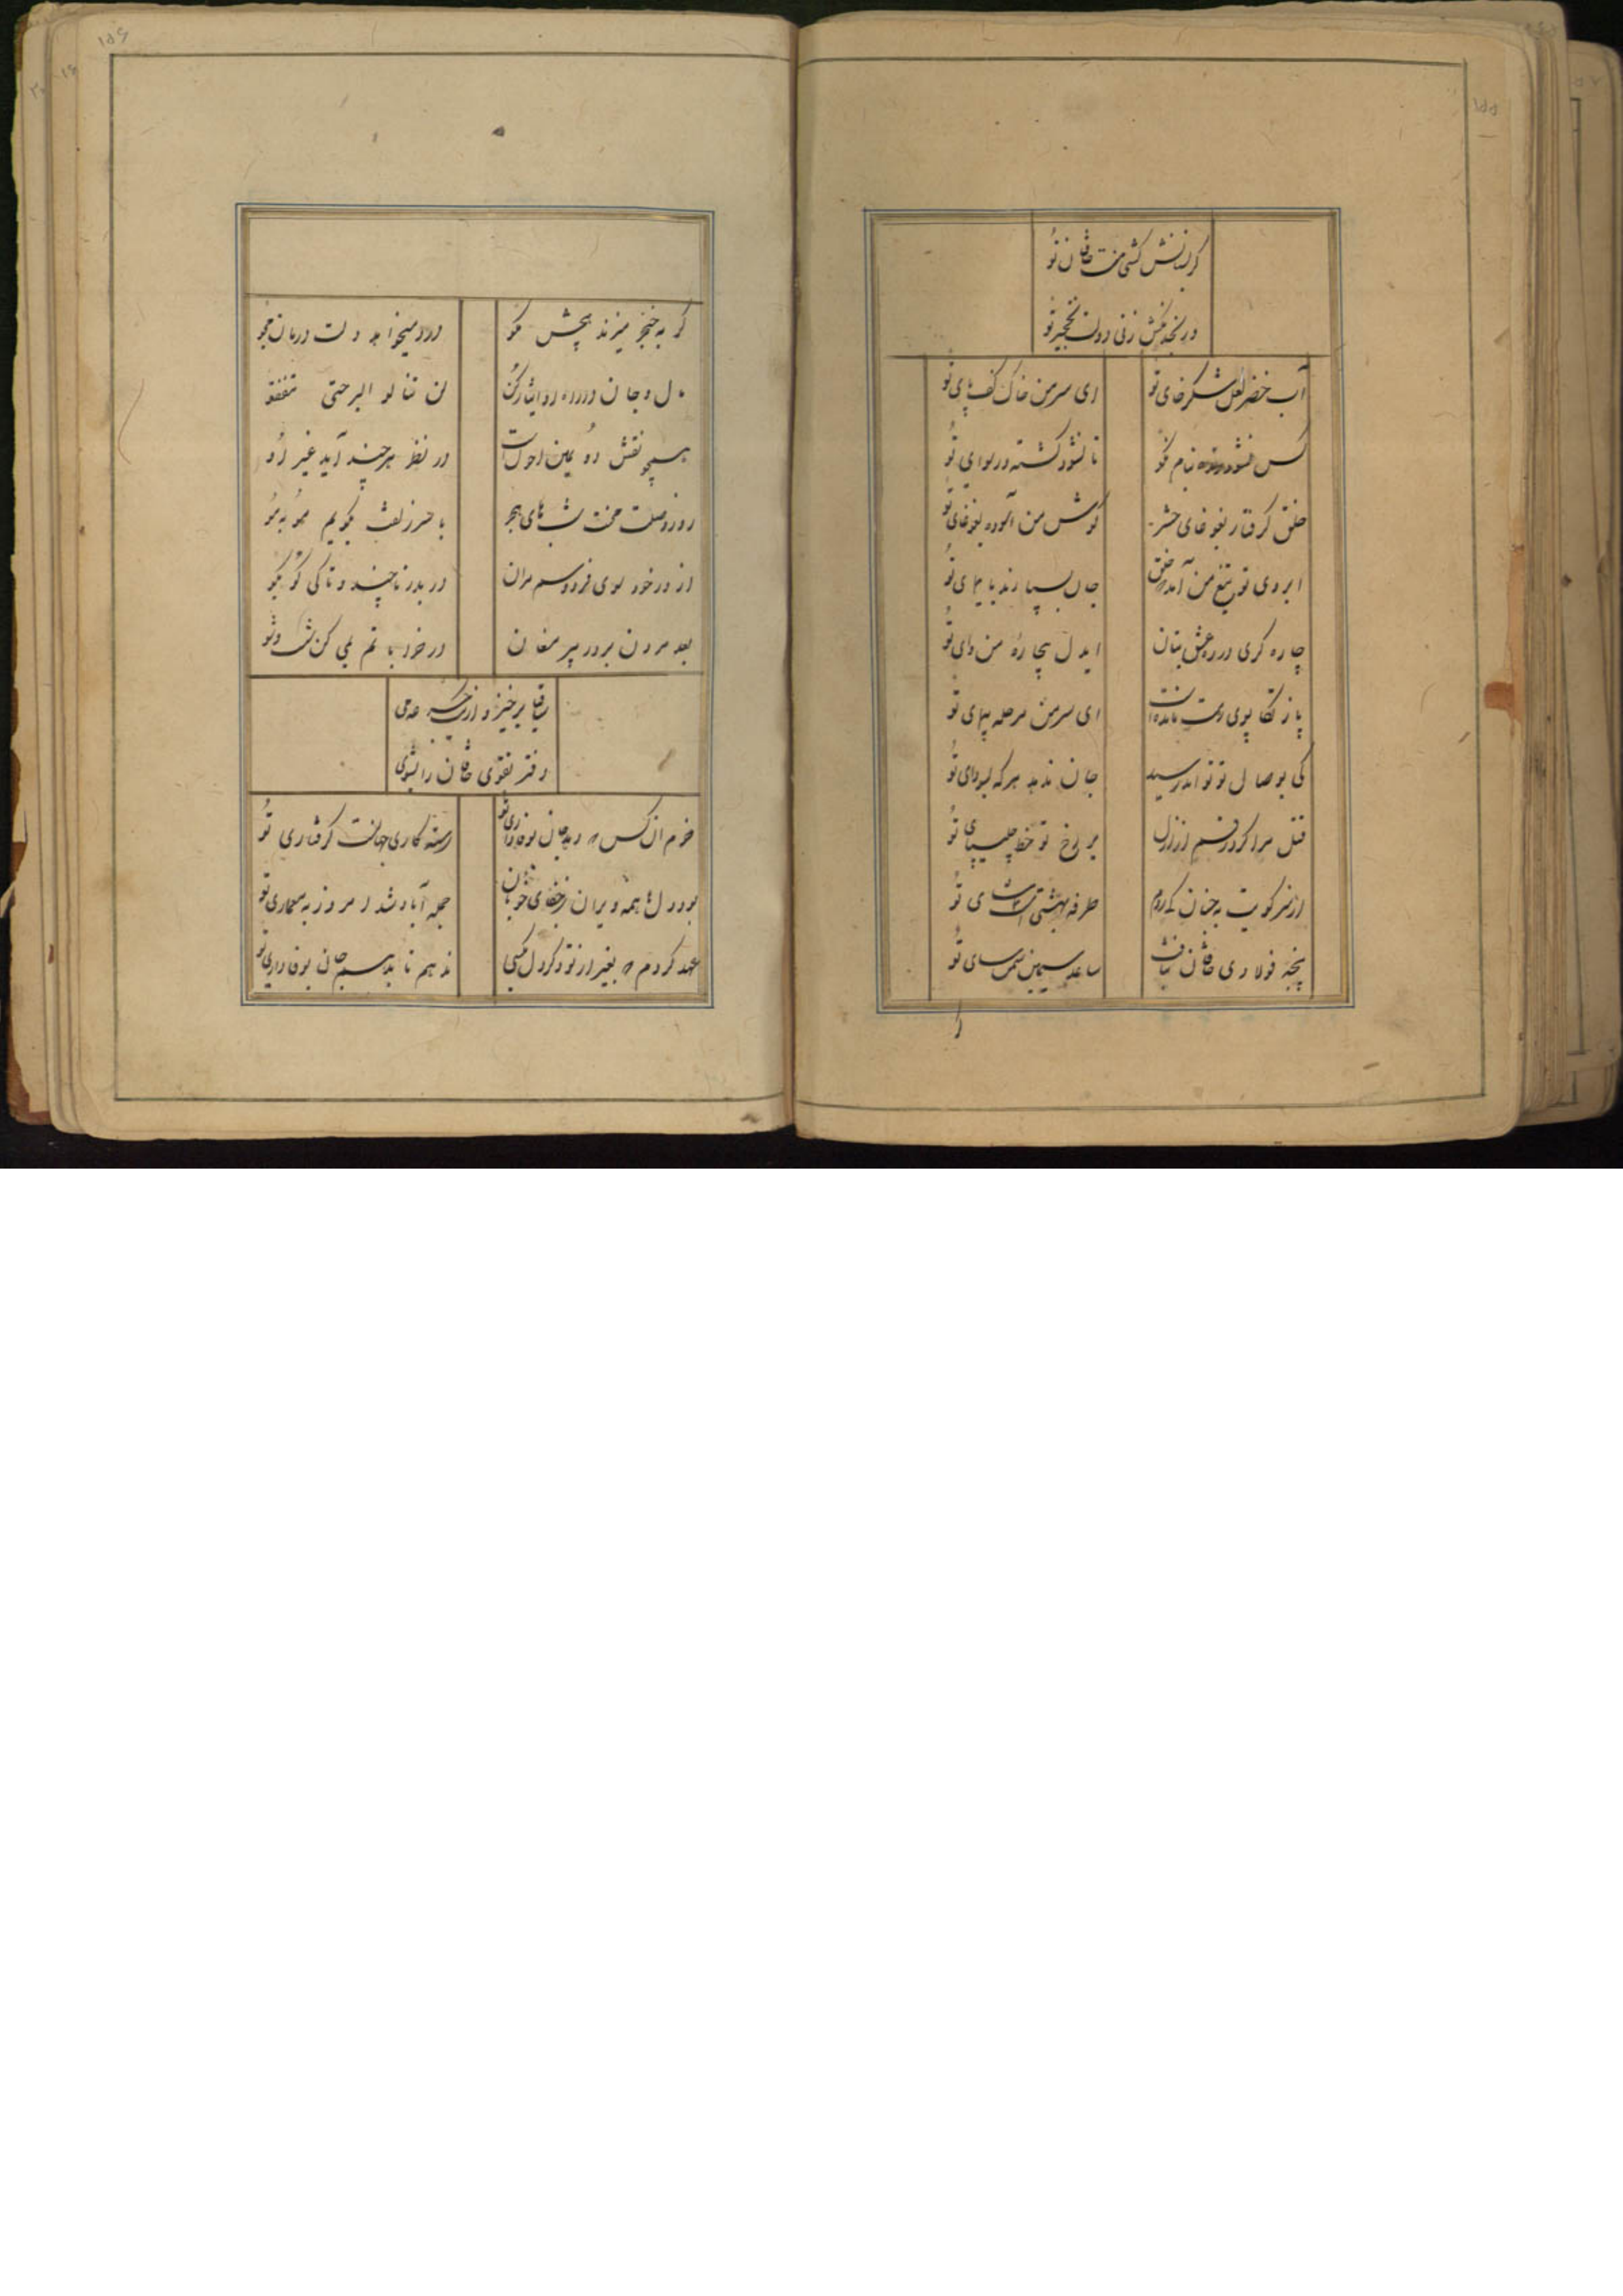 گر بسانش کشی منت خاقان تو
آب خضر لعل شکرخای تو
ای سر من خاک کف پای تو
کس نشود زنده بنام نکو
تا نشود کشته در سوای تو
خلق گرفتار بغوغای حشر
گوش من آلوده بغوغای تو
ابروی تو تیغ من آمد بخلق
جان بسپارند بایمای تو
چاره گری در ره عشق بتان
ایدل بیچاره من وای تو
پا ز تکاپوی رهت مانده است
ای سر من مرحله پیمای تو
کی بوصال تو تواند رسید
جان ندهد هر که بسودای تو
قتل مرا کرد رقم از ازل
بر رخ تو خط چلیپای تو
از سر کویت به جنان کی روم
طرفه بهشتی است
پنجه فولادی خاقان بتافت
ساعد سیمین سمن سای تو
گر به خنجر میزند هیچش مگو
درد میخواهد دلت درمان مجو
دل و جان در ره او ایثار کن
لن تنالوا البر حتی تنفقوا
همچو نقش دو بین احول است
در نظر هر چند آید غیر او
روز وصلت محنت شبهای هجر
با سر زلفت بگویم مو به مو
از در خود سوی فردوسم مران
در بدر تا چند و تا کی کو بکو
بعد مردن بر در پیر مغان
در خرابا تم بمی کن شست و شو
ساقیا برخیز و از یک جرعه می
دفتر تقوی خاقان را بشوی
خرم آن کس که دهد جان بوفاداری تو
رسته کاری جهانست گرفتاری تو
بود دلها همه ویران ز جفای خوبان
جمله آباد شد امروز به معماری تو
عهد کردم که بغیر از تو و گر دل بکسی
ندهم تا بدهم جان بوفاداری تو